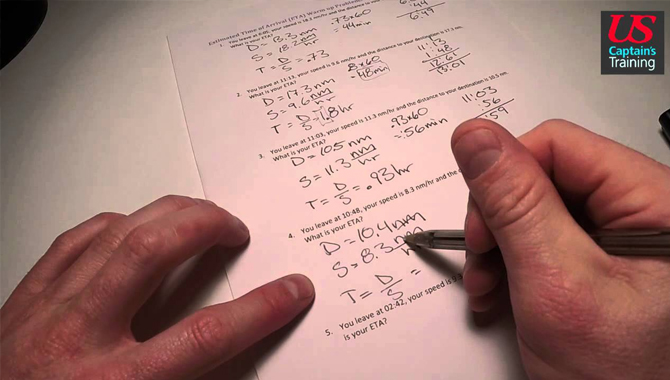 US
Captain's
Training
Estimated Time of Arrival (ETA) Warm up Problems
1. You leave at 6:05, your speed is 18.2 nm/hr and the distance to your
What is your ETA?
D = 13.3 nm
S = 18.2 nm/hr
T = D/S = .73
.73x60
= 44 min
:44
6:49
2. You leave at 11:13, your speed is 9.6 nm/hr and the distance to your destination is 17.3 nm.
What is your ETA?
D = 17.3 nm
S = 9.6 nm/hr
T = D/S = 1.8 hr
.8x60
= 48 min
11:13
1:48
12:61
13:01
3. You leave at 11:03, your speed is 11.3 nm/hr and the distance to your destination is 10.5 nm.
What is your ETA?
D = 10.5 nm
S = 11.3 nm/hr
T = D/S = .93 hr
.93x60
= :56 min
11:03
:56
:59
4. You leave at 10:48, your speed is 8.3 nm/hr and the
What is your ETA?
D = 10.4 nm
S = 8.3 nm
T = D/S =
5. You leave at 02:42, your speed is 9.9
is your ETA?